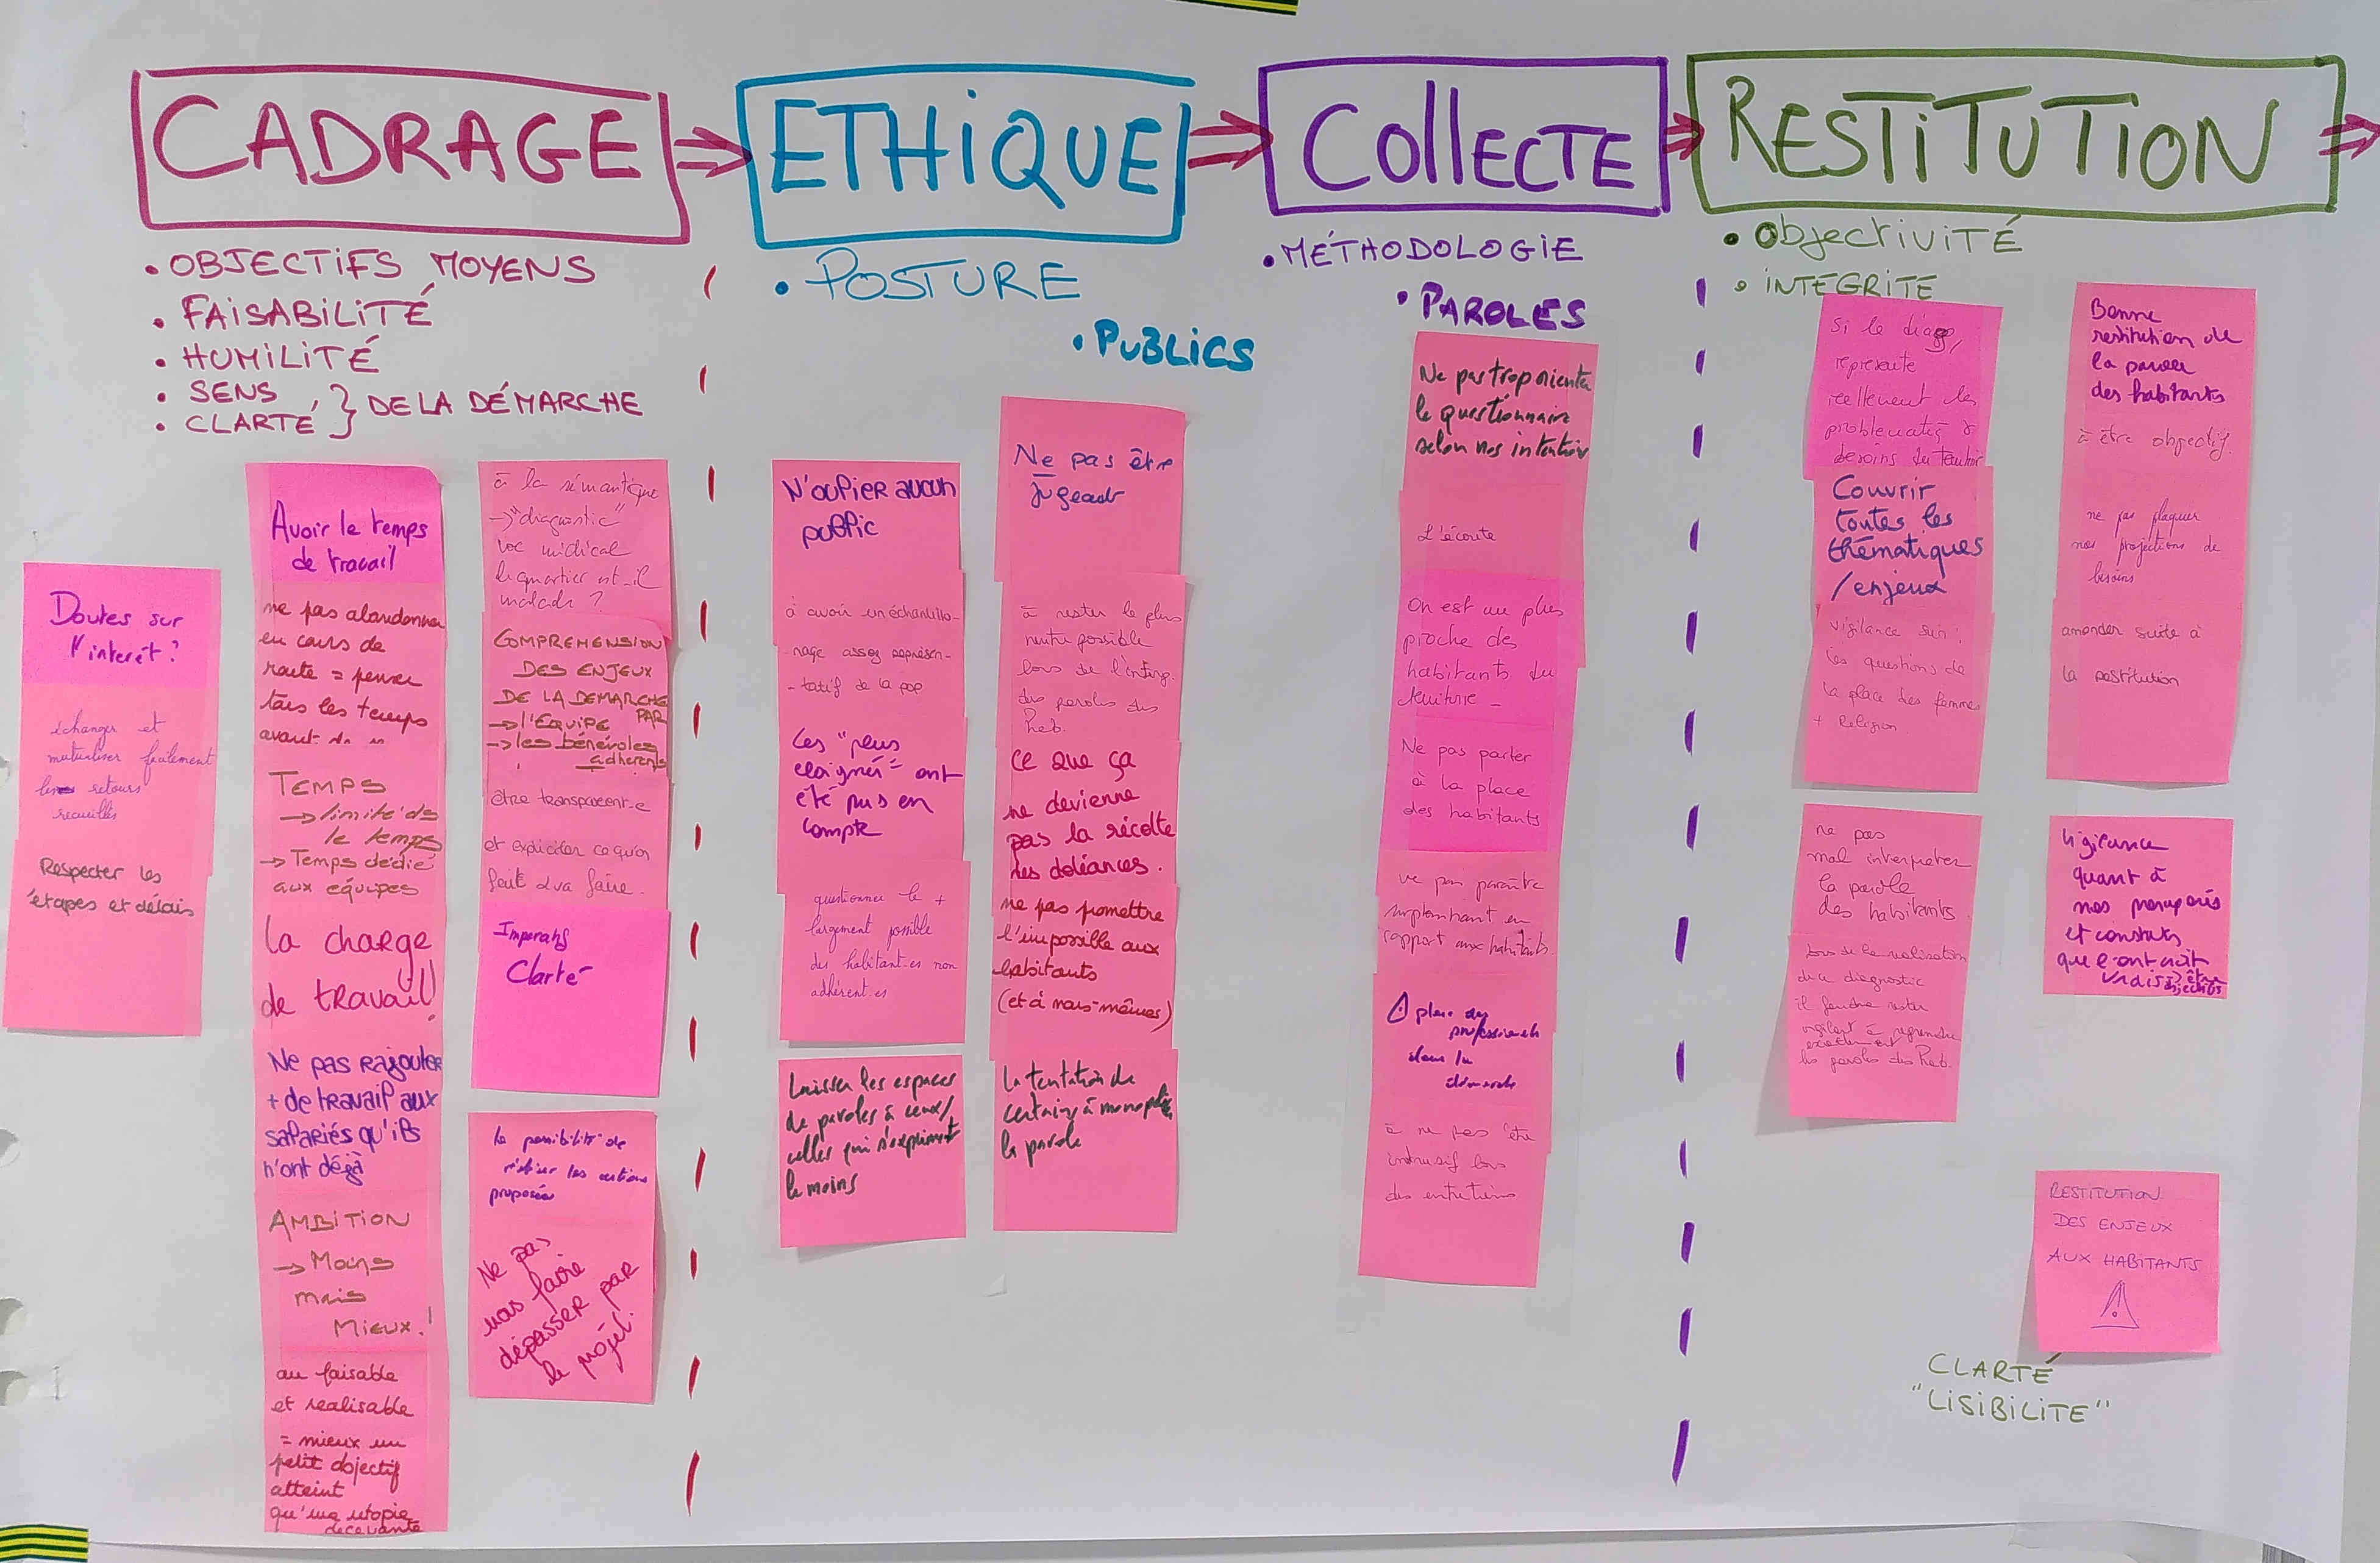 CADRAGE
⇒
ETHIQUE
⇒
COllECTE
⇒
RESTITUTION
⇒
• OBJECTIFS MOYENS
• FAISABILITÉ
• HUMILITÉ
• SENS
• CLARTÉ } DE LA DÉMARCHE
Doutes sur
l'interêt?
échanger et
mutualiser facilement
les retours
recueillis
Respecter les
étapes et délais
Avoir le temps
de travail
ne pas abandonner
en cours de
route = penser
tous les temps
avant
TEMPS
→ limite ds
le temps
→ Temps dédié
aux équipes
la charge
de travail!
Ne pas rajouter
+ de travail aux
salariés qu'ils
n'ont déjà
AMBITION
→ Moins
mais
Mieux!
au faisable
et realisable
= mieux un
petit objectif
atteint
qu'une utopie
decevante
à la sémantique
→ "diagnostic"
voc médical
le quartier est-il
malade ?
COMPREHENSION
DES ENJEUX
DE LA DEMARCHE
PAR
→ l'Equipe
→ les bénévoles
adhérents
être transparent-e
et expliciter ce qu'on
fait & va faire.
Imperatifs
Clarté
La possibilité de
réaliser les actions
proposées
Ne pas
nous faire
dépasser par
le projet.
• POSTURE
• PUBLICS
N'oublier aucun
public
à avoir un échantillo-
-nage assez représen-
-tatif de la pop
Les "plus
éloignés" ont
été pris en
compte
questionner le +
largement possible
des habitant-es non
adhérent-es
Laisser les espaces
de paroles à ceux/
celles qui s'expriment
le moins
Ne pas être
jugeant
à rester le plus
neutre possible
lors de l'interp.
des paroles des
hab.
ce que ça
ne devienne
pas la récolte
des doléances.
ne pas promettre
l'impossible aux
habitants
(et à nous-mêmes)
La tentation de
certains à monopoliser
la parole
• MÉTHODOLOGIE
• PAROLES
Ne pas trop orienter
le questionnaire
selon nos intentions
L'écoute
On est au plus
proche des
habitants du
territoire -
Ne pas parler
à la place
des habitants
ne pas paraître
surplombant en
rapport aux habitants.
⚠ place des
professionnels
dans la
démarche
à ne pas être
intrusif lors
des entretiens
• ObjectiviTÉ
• INTÉGRITÉ
Si le diag,
représente
réellement les
problématiqs &
besoins du territoire
Couvrir
toutes les
thématiques
/enjeux
vigilance sur :
les questions de
la place des femmes
+ Religion
ne pas
mal interpreter
la parole
des habitants
lors de la réalisation
du diagnostic
il faudra rester
vigilant à reprendre
exactement
les paroles des hab.
Bonne
restitution de
la parole
des habitants
à être objectif.
ne pas plaquer
nos projections de
besoins
amender suite à
la restitution
Vigilance
quant à
nos préjugés
et constats
que l'on croit
vrais
RESTITUTION
DES ENJEUX
AUX HABITANTS
⚠
CLARTÉ
"LISIBILITE"